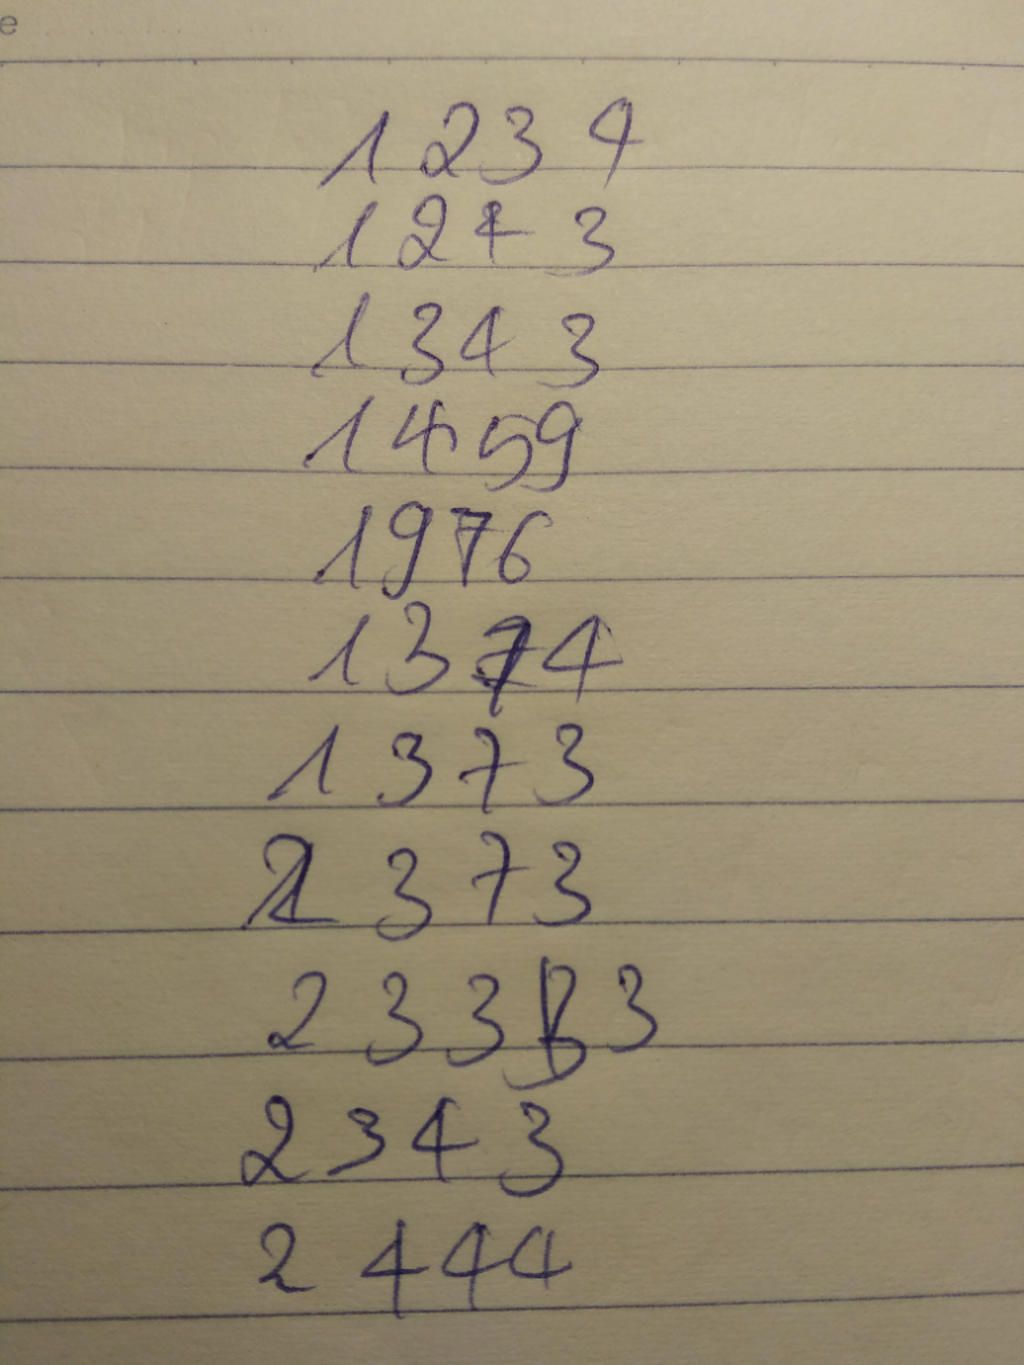 e
1234
1243
1343
1459
1976
1374
1373
2373
23333
2343
2444